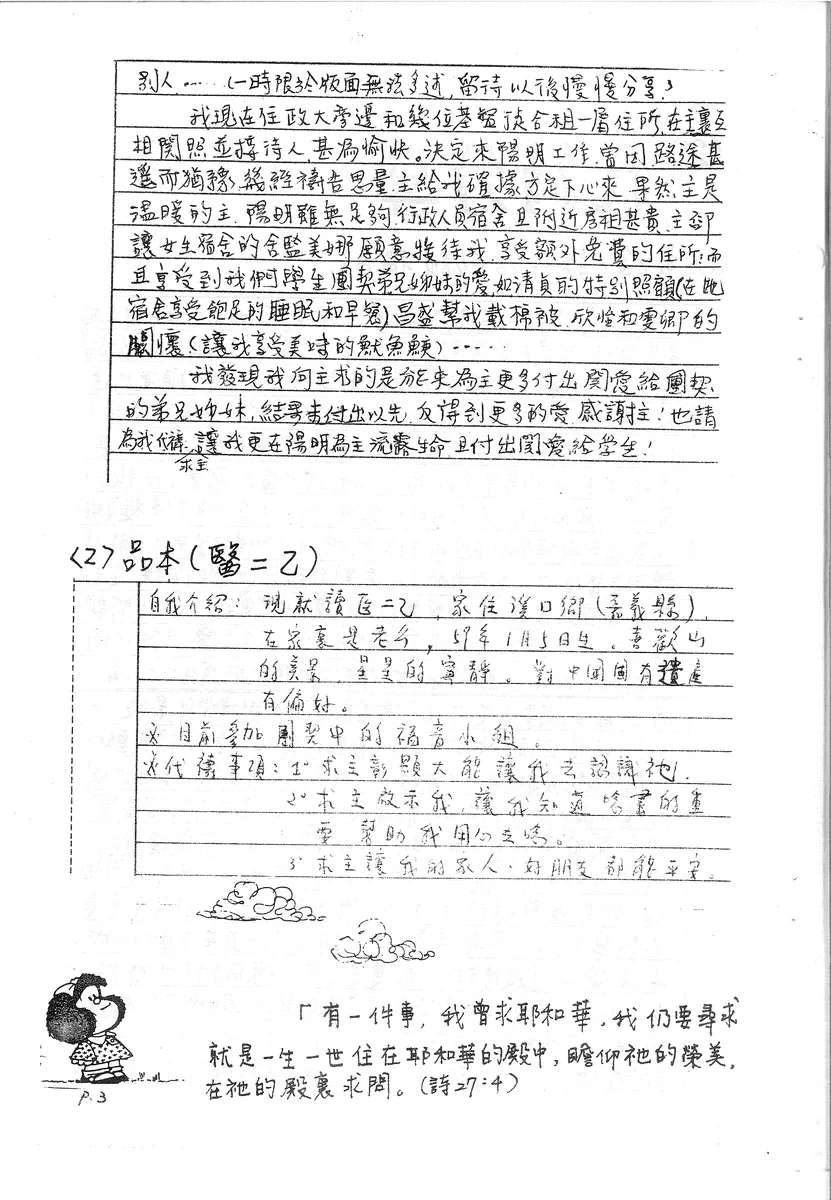 別人……(一時限於版面無法多述,留待以後慢慢分享)
我現在住政大旁邊和幾位基督徒合租一層住所,在主裏互
相関照並接待人,甚為愉快。決定來陽明工作,曾因路途甚
遙而猶豫,幾經禱告思量,主給我確據方定下心來,果然主是
溫暖的主,陽明雖無足夠行政人員宿舍且附近房租甚貴,主卻
讓女生宿舍的舍監美娜願意接待我,享受額外免費的住所;而
且享受到我們學生團契弟兄姊妹的愛,如清貞的特別照顧(在此
宿舍享受飽足的睡眠和早餐)昌盛幫我載棉被,欣怡和雲卿的
關懷(讓我享受美味的魷魚鰇)……
我發現我向主求的是能來為主更多付出関愛給團契
的弟兄姊妹,結果未付出以先,反得到更多的愛,感謝主!也請
為我代禱,求主讓我更在陽明為主流露生命,且付出関愛給学生!
<2>品本(醫二乙)
自我介紹:現就讀医二乙,家住溪口鄉(嘉義縣),
在家裏是老么,59年1月5日生。喜歡山
的美景,星星的寧靜。對中國固有遺産
有偏好。
※目前參加團契中的福音小組。
※代禱事項:1°求主彰顯大能讓我去認識祂.
2°求主啟示我,讓我知道唸書的重
要 幫助我用心去唸。
3°求主讓我的家人、好朋友都能平安。
「有一件事,我曾求耶和華,我仍要尋求
就是一生一世住在耶和華的殿中,瞻仰祂的榮美,
在祂的殿裏求問。(詩27:4)
P.3